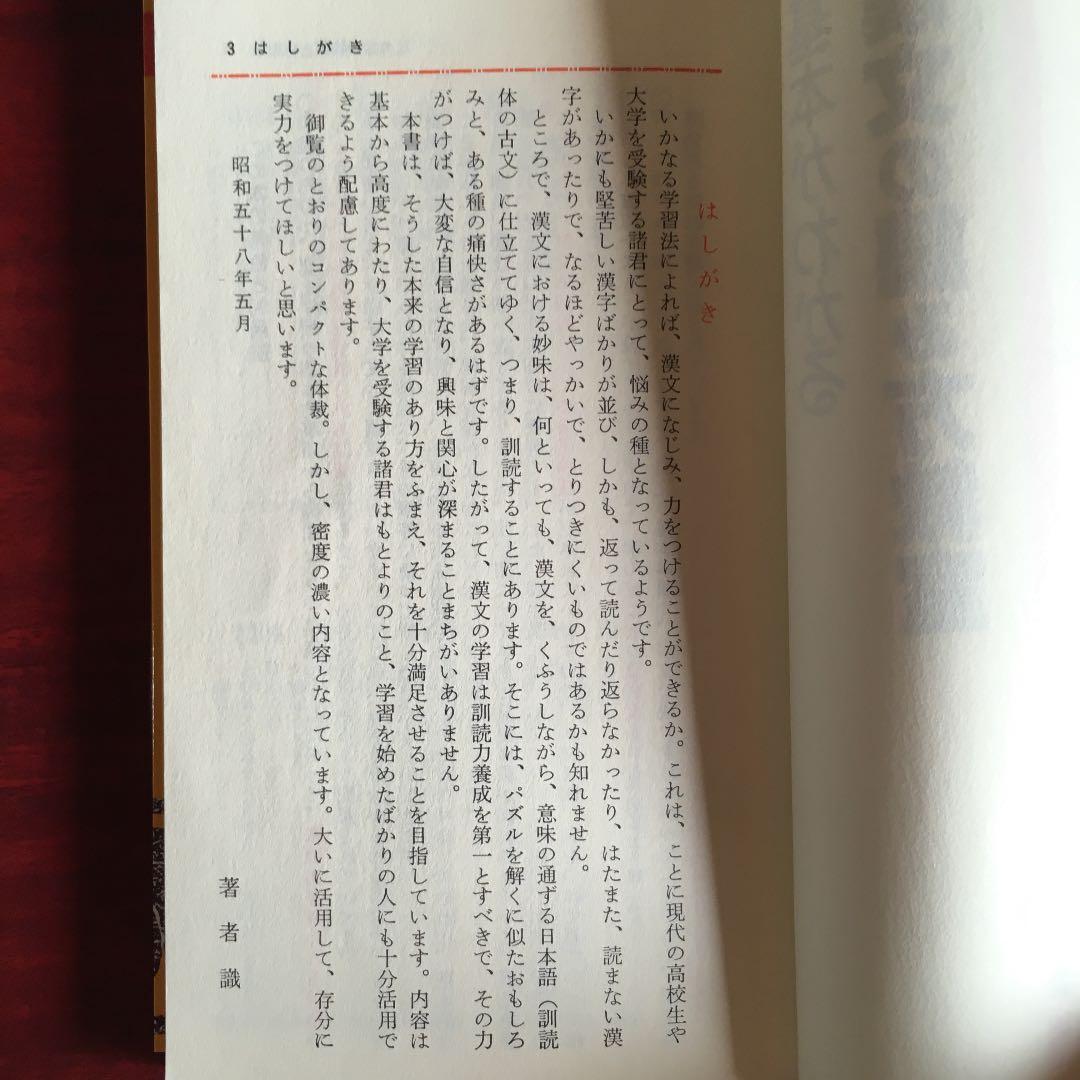 3 はしがき
はしがき
いかなる学習法によれば、漢文になじみ、力をつけることができるか。これは、ことに現代の高校生や
大学を受験する諸君にとって、悩みの種となっているようです。
いかにも堅苦しい漢字ばかりが並び、しかも、返って読んだり返らなかったり、はたまた、読まない漢
字があったりで、なるほどやっかいで、とりつきにくいものではあるかも知れません。
ところで、漢文における妙味は、何といっても、漢文を、くふうしながら、意味の通ずる日本語（訓読
体の古文）に仕立ててゆく、つまり、訓読することにあります。そこには、パズルを解くに似たおもしろ
みと、ある種の痛快さがあるはずです。したがって、漢文の学習は訓読力養成を第一とすべきで、その力
がつけば、大変な自信となり、興味と関心が深まることまちがいありません。
本書は、そうした本来の学習のあり方をふまえ、それを十分満足させることを目指しています。内容は
基本から高度にわたり、大学を受験する諸君はもとよりのこと、学習を始めたばかりの人にも十分活用で
きるよう配慮してあります。
御覧のとおりのコンパクトな体裁。しかし、密度の濃い内容となっています。大いに活用して、存分に
実力をつけてほしいと思います。
昭和五十八年五月
著者識